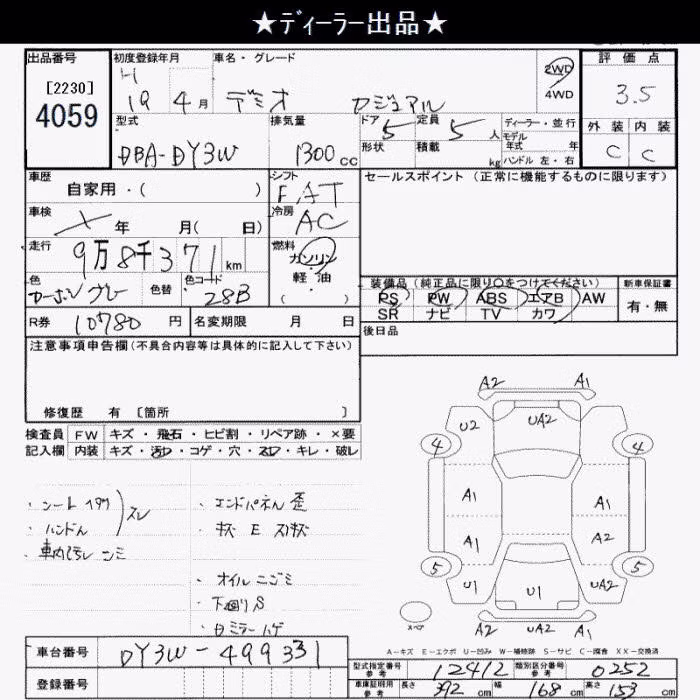 ★ディーラー出品★
出品番号 初度登録年月 車名・グレード 評価点
[2230] H 2WD
4059 19 4月 デミオ カジュアル 4WD 3.5
型式 排気量 ドア 5 定員 5人 ディーラー・並行 外装 内装
DBA-DY3W 1300cc 形状 積載 kg モデル年式 年 ハンドル 左・右 C C
車歴 自家用・( ) シフト FAT セールスポイント (正常に機能するものに限ります)
車検 年 月( 日) 冷房 AC
走行 9万8千371km 燃料 ガソリン
軽油
色 カーボングレー 色替 色コード 28B ( ) 装備品 (純正品に限り○をつけてください) 新車保証書
PS PW ABS エアB AW 有・無
R券 10780円 名変期限 月 日 SR ナビ TV カワ
注意事項申告欄(不具合内容等は具体的に記入して下さい) 後日品
修復歴 有 [箇所 ]
検査員 FW キズ・飛石・ヒビ割・リペア跡・×要
記入欄 内装 キズ・汚れ・コゲ・穴・スレ・キレ・破レ
A2 A1
U2 UA2
4 4
A1 A1
A1 A2
5 5
U1 U1 UA2
A2 UA2 A1
スペア
・ハンドル スレ
・エンドパネル 歪
・オイルニゴミ
・下廻りS
A-キズ E-エクボ U-凹み W-補修跡 S-サビ C-腐食 XX-交換済
車台番号 DY3W-499331
登録番号
型式指定番号 参考 12412 類別区分番号 参考 0252
車庫証明用 参考 長さ 392cm 幅 168cm 高さ 153cm